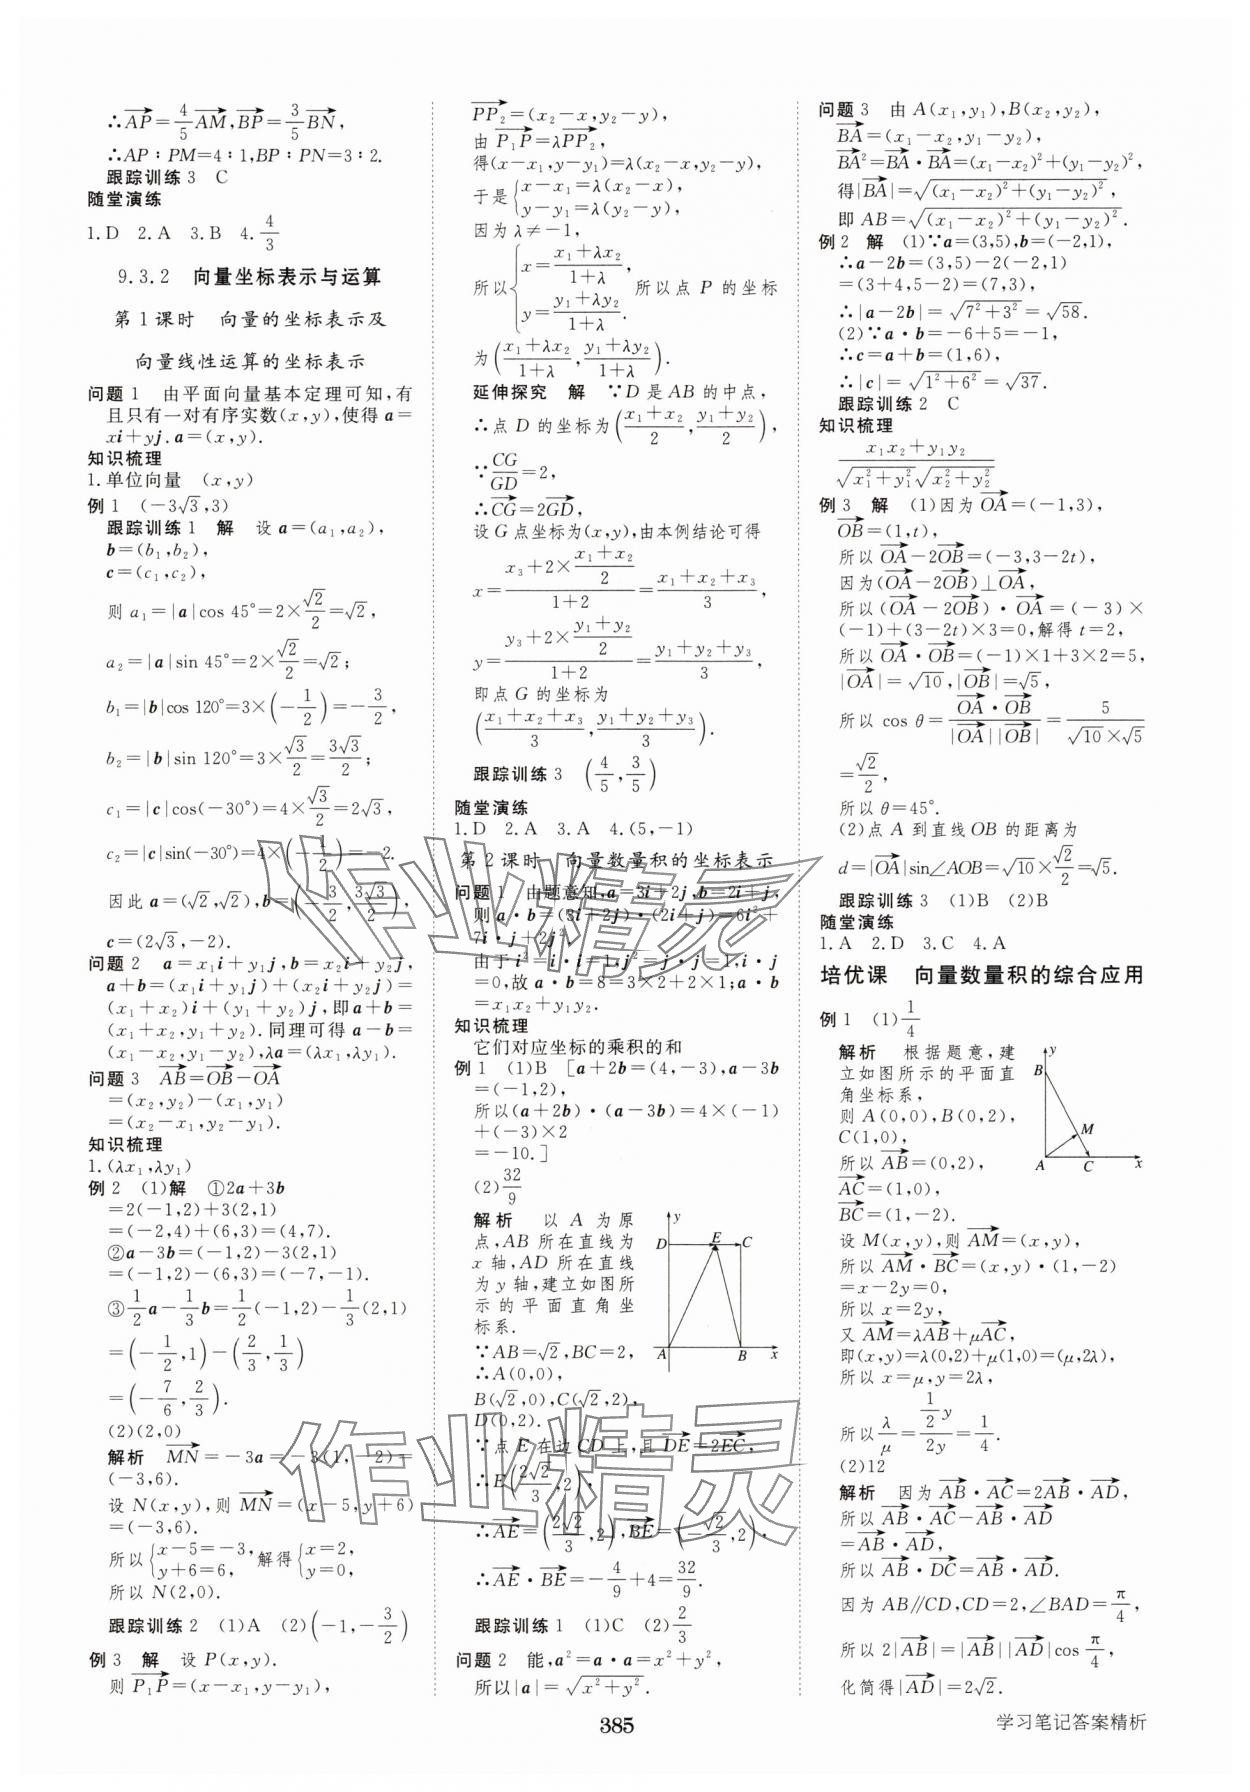 ∴$\overrightarrow{AP}=\frac{4}{5}\overrightarrow{AM}$,$\overrightarrow{BP}=\frac{3}{5}\overrightarrow{BN}$,
∴AP∶PM=4∶1,BP∶PN=3∶2.
跟踪训练3 C
随堂演练
1.D 2.A 3.B 4.$\frac{4}{3}$
9.3.2 向量坐标表示与运算
第1课时 向量的坐标表示及
向量线性运算的坐标表示
问题1 由平面向量基本定理可知,有
且只有一对有序实数(x,y),使得a=
xi+yj.a=(x,y).
知识梳理
1.单位向量 (x,y)
例1 (-3√3,3)
跟踪训练1 解 设a=(a₁,a₂),
b=(b₁,b₂),
c=(c₁,c₂),
则a₁=|a|cos 45°=2×$\frac{\sqrt{2}}{2}$=√2,
a₂=|a|sin 45°=2×$\frac{\sqrt{2}}{2}$=√2;
b₁=|b|cos 120°=3×$\left(-\frac{1}{2}\right)$=-$\frac{3}{2}$,
b₂=|b|sin 120°=3×$\frac{\sqrt{3}}{2}$=$\frac{3\sqrt{3}}{2}$;
c₁=|c|cos(-30°)=4×$\frac{\sqrt{3}}{2}$=2√3,
c₂=|c|sin(-30°)=4×$\left(-\frac{1}{2}\right)$=-2.
因此a=(√2,√2),b=$\left(-\frac{3}{2},\frac{3\sqrt{3}}{2}\right)$,
c=(2√3,-2).
问题2 a=x₁i+y₁j,b=x₂i+y₂j,
a+b=(x₁i+y₁j)+(x₂i+y₂j)=
(x₁+x₂)i+(y₁+y₂)j,即a+b=
(x₁+x₂,y₁+y₂).同理可得a-b=
(x₁-x₂,y₁-y₂),λa=(λx₁,λy₁).
问题3 $\overrightarrow{AB}=\overrightarrow{OB}-\overrightarrow{OA}$
=(x₂,y₂)-(x₁,y₁)
=(x₂-x₁,y₂-y₁).
知识梳理
1.(λx₁,λy₁)
例2 (1)解 ①2a+3b
=2(-1,2)+3(2,1)
=(-2,4)+(6,3)=(4,7).
②a-3b=(-1,2)-3(2,1)
=(-1,2)-(6,3)=(-7,-1).
③$\frac{1}{2}$a-$\frac{1}{3}$b=$\frac{1}{2}$(-1,2)-$\frac{1}{3}$(2,1)
=$\left(-\frac{1}{2},1\right)-\left(\frac{2}{3},\frac{1}{3}\right)$
=$\left(-\frac{7}{6},\frac{2}{3}\right)$.
(2)(2,0)
解析 $\overrightarrow{MN}$=-3a=-3(1,-2)=
(-3,6).
设N(x,y),则$\overrightarrow{MN}$=(x-5,y+6)
=(-3,6).
所以$\begin{cases}x-5=-3,\\y+6=6,\end{cases}$解得$\begin{cases}x=2,\\y=0,\end{cases}$
所以N(2,0).
跟踪训练2 (1)A (2)$\left(-1,-\frac{3}{2}\right)$
例3 解 设P(x,y).
则$\overrightarrow{P_1P}$=(x-x₁,y-y₁),
$\overrightarrow{PP_2}$=(x₂-x,y₂-y),
由$\overrightarrow{P_1P}=λ\overrightarrow{PP_2}$,
得(x-x₁,y-y₁)=λ(x₂-x,y₂-y),
于是$\begin{cases}x-x_1=λ(x_2-x),\\y-y_1=λ(y_2-y),\end{cases}$
因为λ≠-1,
所以$\begin{cases}x=\frac{x_1+λx_2}{1+λ},\\y=\frac{y_1+λy_2}{1+λ}.\end{cases}$所以点P的坐标
为$\left(\frac{x_1+λx_2}{1+λ},\frac{y_1+λy_2}{1+λ}\right)$.
延伸探究 解 ∵D是AB的中点,
∴点D的坐标为$\left(\frac{x_1+x_2}{2},\frac{y_1+y_2}{2}\right)$,
∵$\frac{CG}{GD}$=2,
∴$\overrightarrow{CG}=2\overrightarrow{GD}$,
设G点坐标为(x,y),由本例结论可得
x=$\frac{x_3+2×\frac{x_1+x_2}{2}}{1+2}=\frac{x_1+x_2+x_3}{3}$,
y=$\frac{y_3+2×\frac{y_1+y_2}{2}}{1+2}=\frac{y_1+y_2+y_3}{3}$,
即点G的坐标为
$\left(\frac{x_1+x_2+x_3}{3},\frac{y_1+y_2+y_3}{3}\right)$.
跟踪训练3 $\left(\frac{4}{5},\frac{3}{5}\right)$
随堂演练
1.D 2.A 3.A 4.(5,-1)
第2课时 向量数量积的坐标表示
问题1 由题意知,a=3i+2j,b=2i+j,
则a·b=(3i+2j)·(2i+j)=6i²+
7i·j+2j².
由于i²=i·i=1,j²=j·j=1,i·j
=0,故a·b=8=3×2+2×1;a·b
=x₁x₂+y₁y₂.
知识梳理
它们对应坐标的乘积的和
例1 (1)B [a+2b=(4,-3),a-3b
=(-1,2),
所以(a+2b)·(a-3b)=4×(-1)
+(-3)×2
=-10.]
(2)$\frac{32}{9}$
解析 以A为原
点,AB所在直线为
x轴,AD所在直线
为y轴,建立如图所
示的平面直角坐
标系.
y
D E C
A B x
∵AB=√2,BC=2,
∴A(0,0),
B(√2,0),C(√2,2),
D(0,2).
∵点E在边CD上,且$\overrightarrow{DE}=2\overrightarrow{EC}$,
∴E$\left(\frac{2\sqrt{2}}{3},2\right)$.
∴$\overrightarrow{AE}=\left(\frac{2\sqrt{2}}{3},2\right)$,$\overrightarrow{BE}=\left(-\frac{\sqrt{2}}{3},2\right)$,
∴$\overrightarrow{AE}·\overrightarrow{BE}=-\frac{4}{9}+4=\frac{32}{9}$.
跟踪训练1 (1)C (2)$\frac{2}{3}$
问题2 能,a²=a·a=x²+y²,
所以|a|=$\sqrt{x^2+y^2}$.
问题3 由A(x₁,y₁),B(x₂,y₂),
$\overrightarrow{BA}$=(x₁-x₂,y₁-y₂),
$\overrightarrow{BA}^2=\overrightarrow{BA}·\overrightarrow{BA}$=(x₁-x₂)²+(y₁-y₂)²,
得|$\overrightarrow{BA}$|=$\sqrt{(x_1-x_2)^2+(y_1-y_2)^2}$,
即AB=$\sqrt{(x_1-x_2)^2+(y_1-y_2)^2}$.
例2 解 (1)∵a=(3,5),b=(-2,1),
∴a-2b=(3,5)-2(-2,1)
=(3+4,5-2)=(7,3),
∴|a-2b|=$\sqrt{7^2+3^2}$=√58.
(2)∵a·b=-6+5=-1,
∴c=a+b=(1,6),
∴|c|=$\sqrt{1^2+6^2}$=√37.
跟踪训练2 C
知识梳理
$\frac{x_1x_2+y_1y_2}{\sqrt{x_1^2+y_1^2}\sqrt{x_2^2+y_2^2}}$
例3 解 (1)因为$\overrightarrow{OA}$=(-1,3),
$\overrightarrow{OB}$=(1,t),
所以$\overrightarrow{OA}-2\overrightarrow{OB}$=(-3,3-2t),
因为($\overrightarrow{OA}-2\overrightarrow{OB}$)⊥$\overrightarrow{OA}$,
所以($\overrightarrow{OA}-2\overrightarrow{OB}$)·$\overrightarrow{OA}$=(-3)×
(-1)+(3-2t)×3=0,解得t=2,
所以$\overrightarrow{OA}·\overrightarrow{OB}$=(-1)×1+3×2=5,
|$\overrightarrow{OA}$|=√10,|$\overrightarrow{OB}$|=√5,
所以cos θ=$\frac{\overrightarrow{OA}·\overrightarrow{OB}}{|\overrightarrow{OA}||\overrightarrow{OB}|}=\frac{5}{\sqrt{10}×\sqrt{5}}$
=$\frac{\sqrt{2}}{2}$,
所以θ=45°.
(2)点A到直线OB的距离为
d=|$\overrightarrow{OA}$|sin∠AOB=√10×$\frac{\sqrt{2}}{2}$=√5.
跟踪训练3 (1)B (2)B
随堂演练
1.A 2.D 3.C 4.A
培优课 向量数量积的综合应用
例1 (1)$\frac{1}{4}$
解析 根据题意,建
立如图所示的平面直
角坐标系,
则A(0,0),B(0,2),
C(1,0),
y
B
M
A C x
所以$\overrightarrow{AB}$=(0,2),
$\overrightarrow{AC}$=(1,0),
$\overrightarrow{BC}$=(1,-2).
设M(x,y),则$\overrightarrow{AM}$=(x,y),
所以$\overrightarrow{AM}·\overrightarrow{BC}$=(x,y)·(1,-2)
=x-2y=0,
所以x=2y,
又$\overrightarrow{AM}=λ\overrightarrow{AB}+μ\overrightarrow{AC}$,
即(x,y)=λ(0,2)+μ(1,0)=(μ,2λ),
所以x=μ,y=2λ,
所以$\frac{λ}{μ}=\frac{\frac{1}{2}y}{2y}=\frac{1}{4}$.
(2)12
解析 因为$\overrightarrow{AB}·\overrightarrow{AC}=2\overrightarrow{AB}·\overrightarrow{AD}$,
所以$\overrightarrow{AB}·\overrightarrow{AC}-\overrightarrow{AB}·\overrightarrow{AD}$
=$\overrightarrow{AB}·\overrightarrow{AD}$,
所以$\overrightarrow{AB}·\overrightarrow{DC}=\overrightarrow{AB}·\overrightarrow{AD}$.
因为AB∥CD,CD=2,∠BAD=$\frac{π}{4}$,
所以2|$\overrightarrow{AB}$|=|$\overrightarrow{AB}$||$\overrightarrow{AD}$|cos $\frac{π}{4}$,
化简得|$\overrightarrow{AD}$|=2√2.
作业精灵
作业精灵
385
学习笔记答案精析